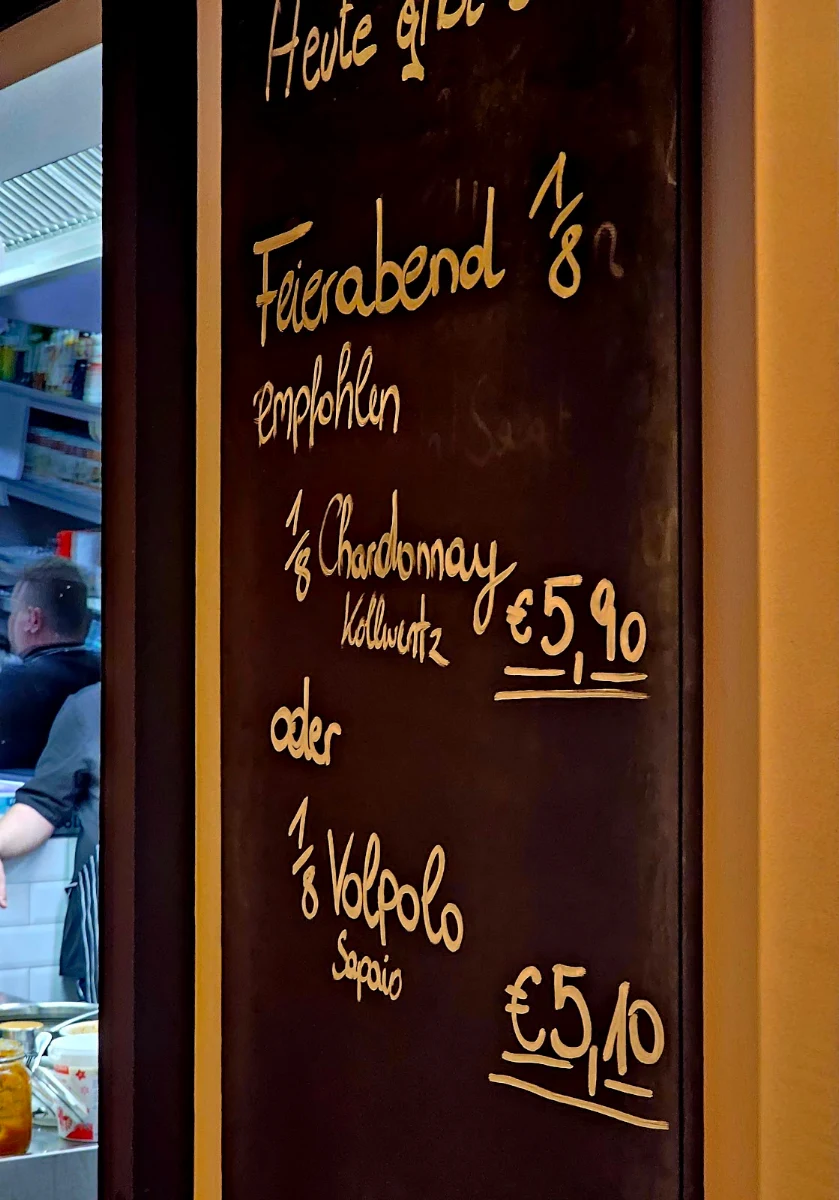 Heute gibt's
Feierabend 1/8
empfohlen
1/8 Chardonnay
Kollwentz
€5,90
oder
1/8 Volpolo
Sapaio
€5,10